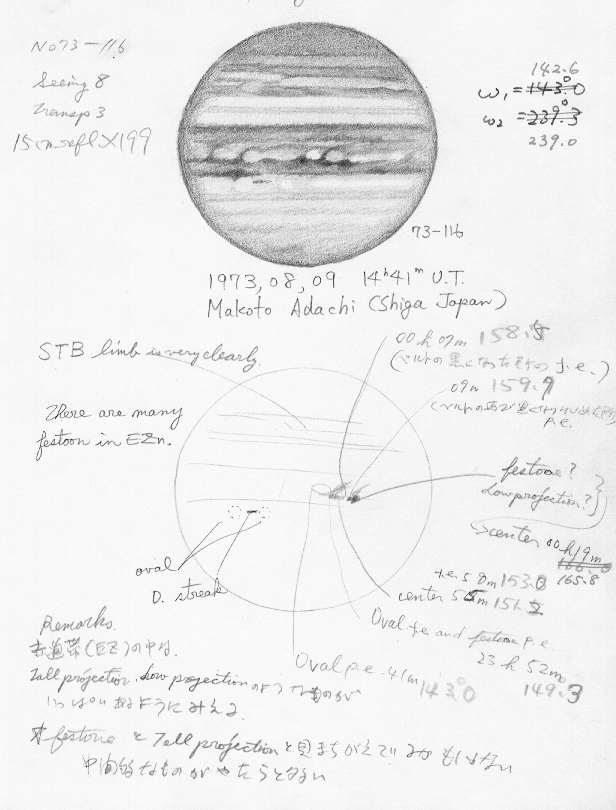 No73-116
Seeing 8
Transp 3
15cm refl ×199
142.6
ω1 = 143.0
ω2 = 239.3
239.0
73-116
1973,08,09 14h41m U.T.
Makoto Adachi (Shiga Japan)
STB limb is very clearly.
There are many
festoon in EZn.
00h 07m 158.5
09m 159.7
p.e.
festone?
Low projection?
center 00h19m
166.0
165.8
f.e. 58m 153.0
center 55m 151.2
Oval f.e and festone p.e.
23h 52m
149.3
Oval p.e. 41m 143.0
oval
D. streak
Remarks.
赤道帯(EZ)の中は、
Tall projection, Low projectionのようなものが
いっぱいあるようにみえる。
festoneとTall projectionと見まちがえているかもしれない
中間的なものがやたらと多い